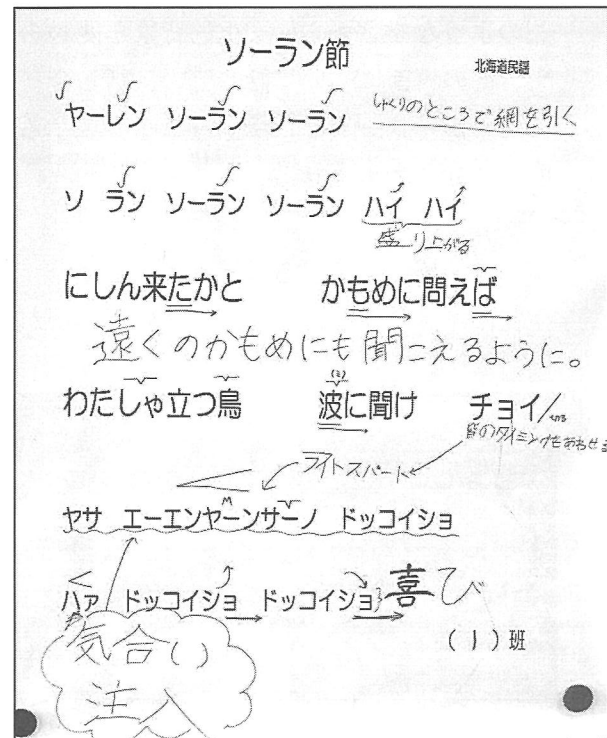 ソーラン節 北海道民謡
ヤーレン ソーラン ソーラン しゃくりのところで網を引く
ソ ラン ソーラン ソーラン ハイ ハイ
盛り上がる
にしん来たかと かもめに問えば
遠くのかもめにも聞こえるように。
(ミ)
わたしゃ立つ鳥 波に聞け チョイ
のタイミングをあわせる
ライトスパート
ヤサ エーエンヤーンサーノ ドッコイショ
ハァ ドッコイショ ドッコイショ 喜び
(1)班
気合()
注入